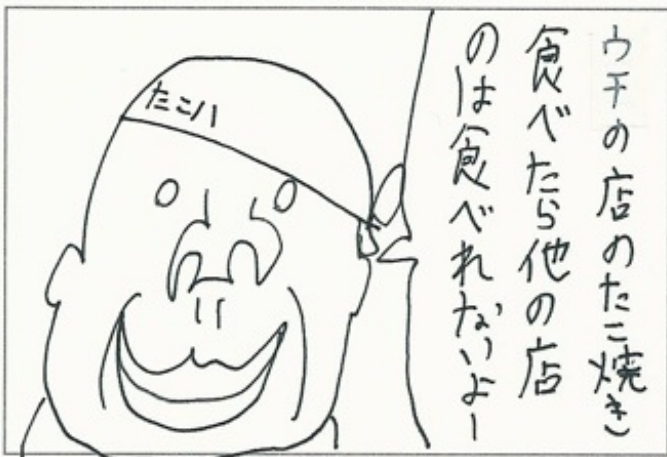 ウチの店のたこ焼き
食べたら他の店
のは食べれないよー
たこ八